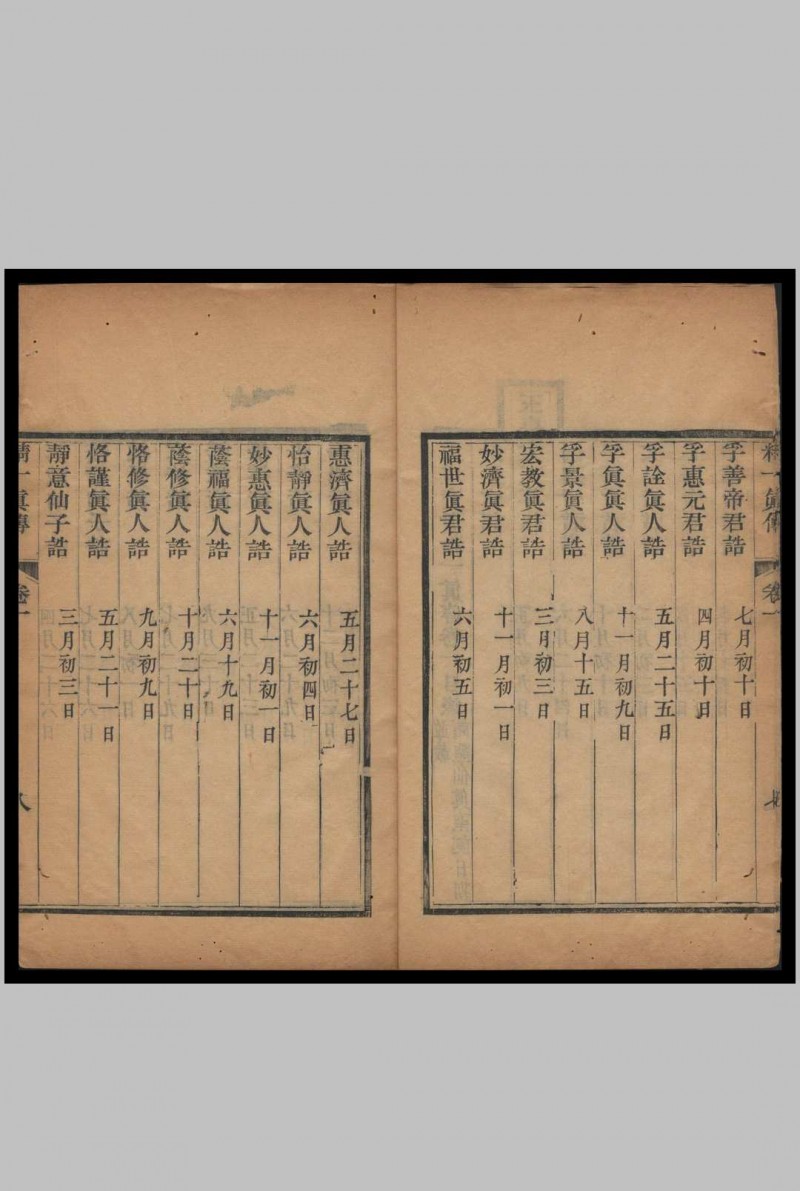 孚善帝君誥 七月初十日
孚惠元君誥 四月初十日
孚詮眞人誥 五月二十五日
孚眞眞人誥 十一月初九日
孚景眞人誥 八月十五日
宏教眞君誥 三月初三日
妙濟眞君誥 十一月初一日
福世眞君誥 六月初五日
惠濟眞人誥 五月二十七日
怡靜眞人誥 六月初四日
妙惠眞人誥 十一月初一日
蔭福眞人誥 六月十九日
蔭修眞人誥 十月二十日
恪修眞人誥 九月初九日
恪謹眞人誥 五月二十一日
靜意仙子誥 三月初三日
一眞傳 卷一 八